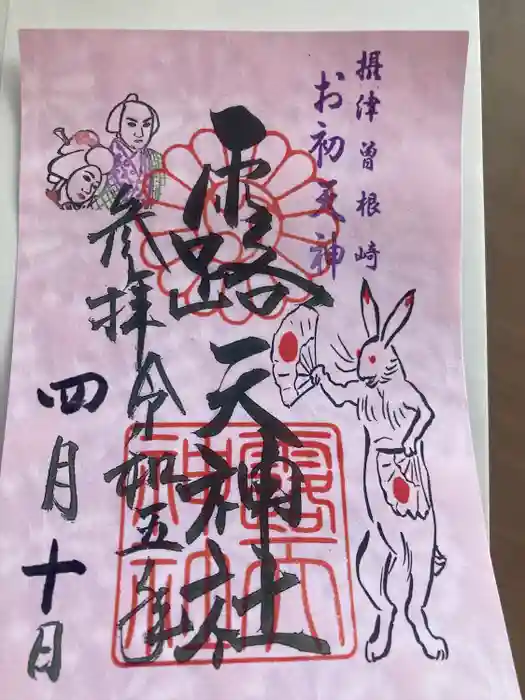 摂津曽根崎
お初天神
露天神社
参拝令和五年
四月十日